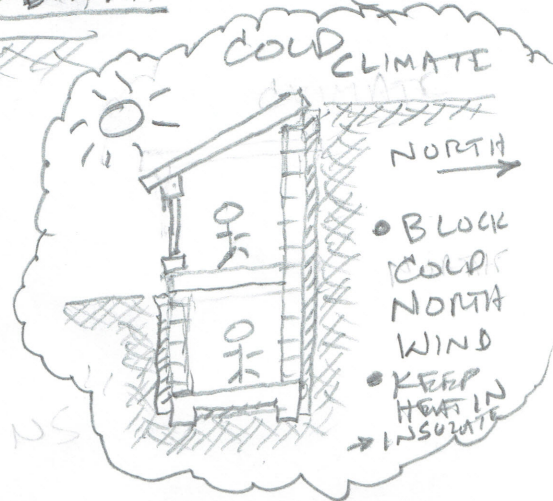 COLD CLIMATE
NORTH
• BLOCK
COLD
NORTH
WIND
• KEEP
HEAT IN
→ INSULATE